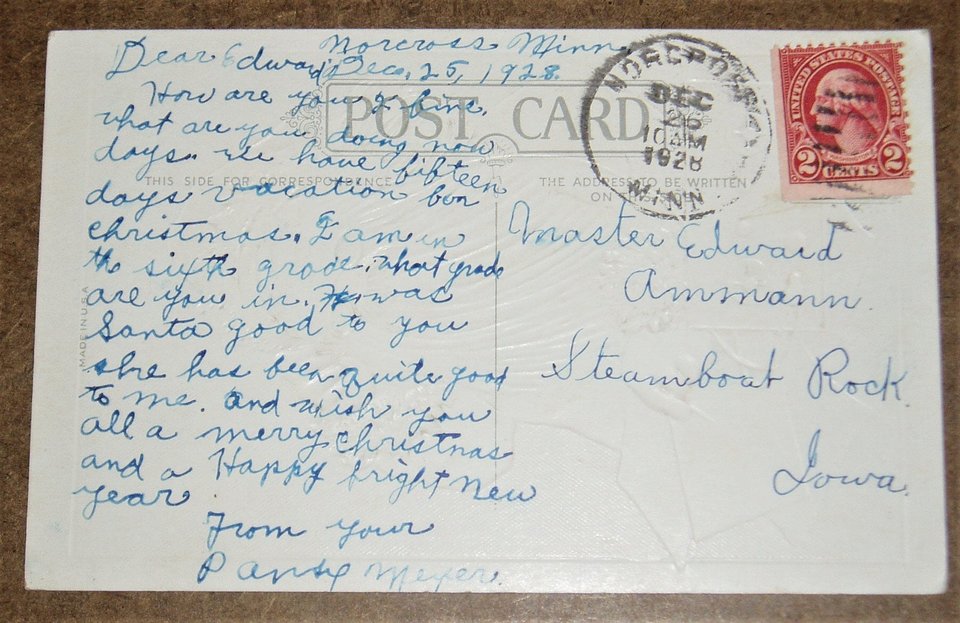 Norcross Minn
Dec. 25, 1928.
Dear Edward
How are you I fine.
what are you doing now
days. We have fifteen
days vacation for
christmas. I am in
the sixth grade. what grade
are you in. was
Santa good to you
she has been quite good
to me. and wish you
all a merry christmas
and a Happy bright New
year
From your
Pansy Meyer.
POST CARD
THIS SIDE FOR CORRESPONDENCE
THE ADDRESS TO BE WRITTEN
ON
MADE IN U.S.A.
NORCROSS
DEC
26
10 AM
1928
MINN
UNITED STATES POSTAGE
2 CENTS 2
Master Edward
Ammann.
Steamboat Rock.
Iowa.